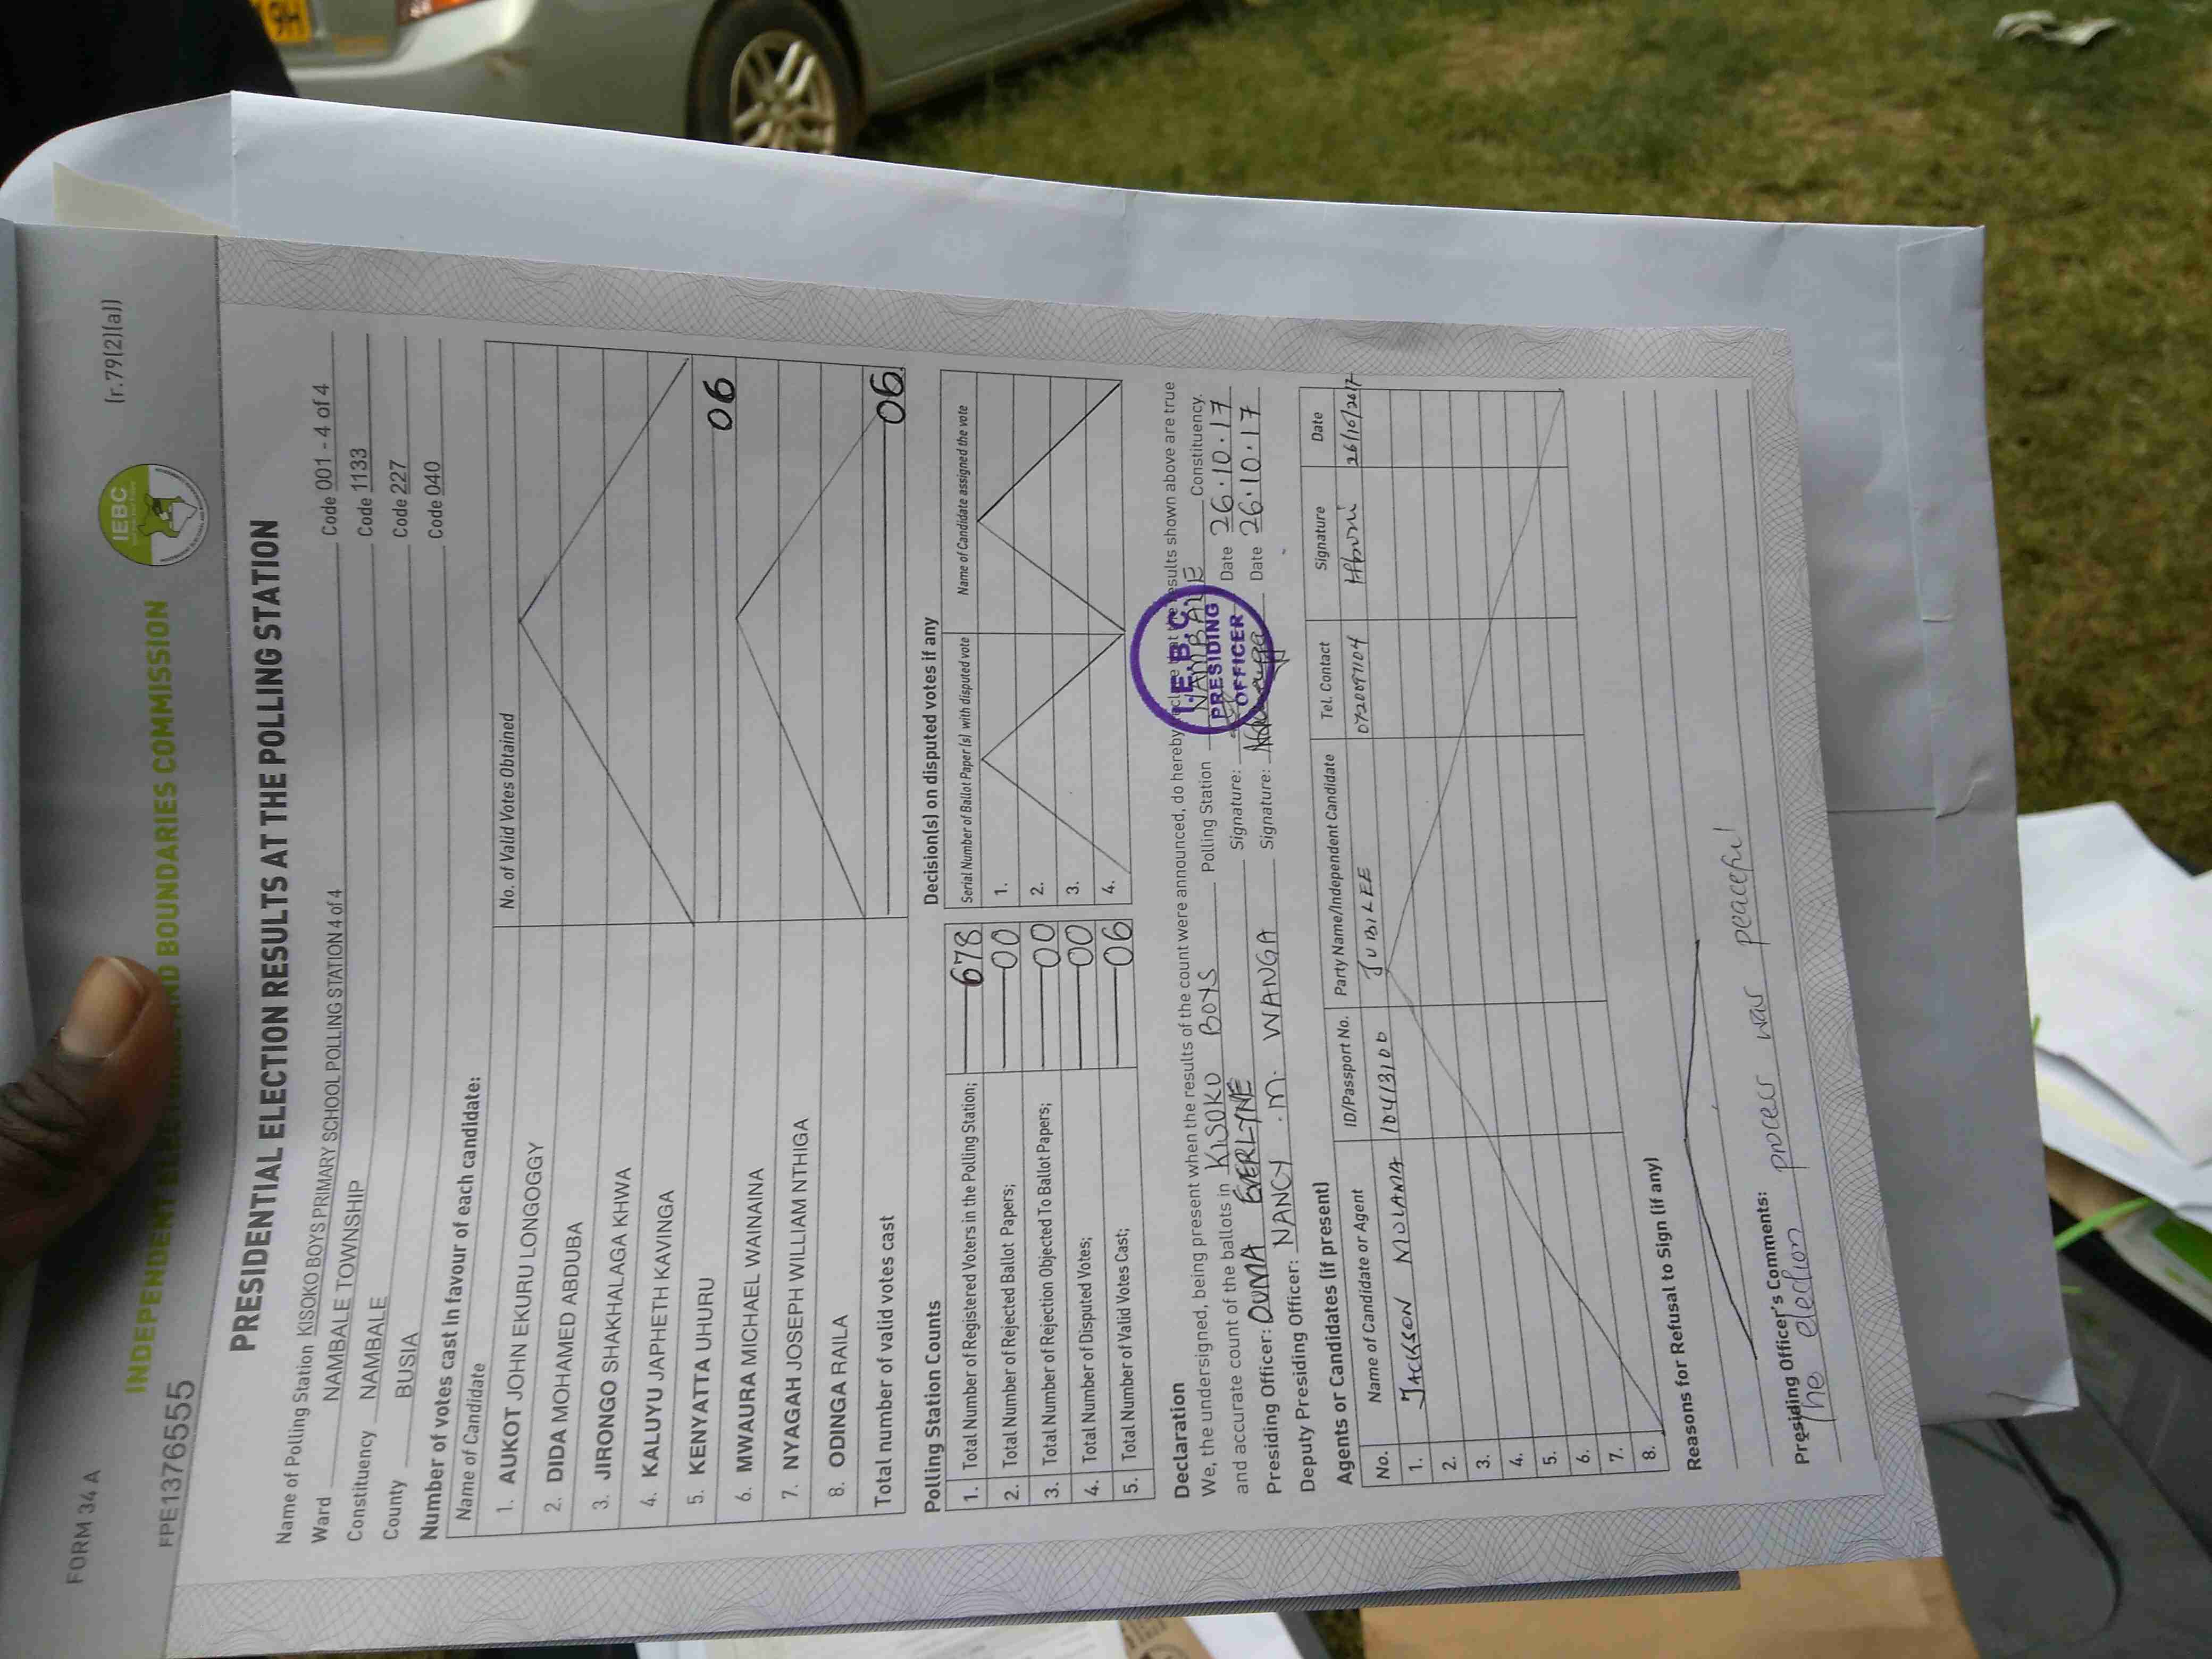 9H
FORM 34 A
(r.79(2)(a))
FPE1376555
IEBC
INDEPENDENT AND BOUNDARIES COMMISSION
PRESIDENTIAL ELECTION RESULTS AT THE POLLING STATION
Name of Polling Station KISOKO BOYS PRIMARY SCHOOL POLLING STATION 4 of 4 Code 001 - 4 of 4
Ward NAMBALE TOWNSHIP Code 1133
Constituency NAMBALE Code 227
County BUSIA Code 040
Number of votes cast in favour of each candidate:
Name of Candidate No. of Valid Votes Obtained
1. AUKOT JOHN EKURU LONGOGGY
2. DIDA MOHAMED ABDUBA
3. JIRONGO SHAKHALAGA KHWA
4. KALUYU JAPHETH KAVINGA
5. KENYATTA UHURU 06
6. MWAURA MICHAEL WAINAINA
7. NYAGAH JOSEPH WILLIAM NTHIGA
8. ODINGA RAILA
Total number of valid votes cast 06
Polling Station Counts
1. Total Number of Registered Voters in the Polling Station; 678
2. Total Number of Rejected Ballot Papers; 00
3. Total Number of Rejection Objected To Ballot Papers; 00
4. Total Number of Disputed Votes; 00
5. Total Number of Valid Votes Cast; 06
Decision(s) on disputed votes if any
Serial Number of Ballot Paper(s) with disputed vote Name of Candidate assigned the vote
1.
2.
3.
4.
Declaration
We, the undersigned, being present when the results of the count were announced, do hereby declare that the results shown above are true
and accurate count of the ballots in KISOKO BOYS Polling Station NAMBALE Constituency.
Presiding Officer: OUMA EVERLYNE Signature: Date 26.10.17
Deputy Presiding Officer: NANCY .M. WANGA Signature: Date 26.10.17
I.E.B.C.
PRESIDING
OFFICER
Agents or Candidates (if present)
No. Name of Candidate or Agent ID/Passport No. Party Name/Independent Candidate Tel. Contact Signature Date
1. JACKSON JUBILEE 26/10/2017
2.
3.
4.
5.
6.
7.
8.
Reasons for Refusal to Sign (if any)
Presiding Officer's Comments:
The election process was peaceful